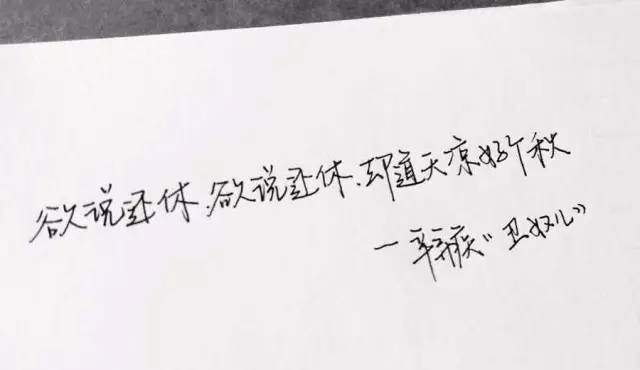 欲说还休,欲说还休,却道天凉好个秋
—辛弃疾“丑奴儿”